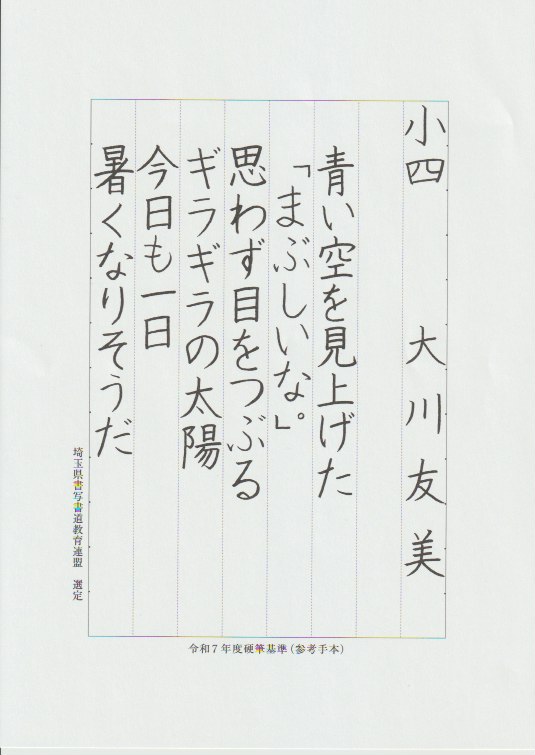 小四 大川友美
青い空を見上げた
「まぶしいな。」
思わず目をつぶる
ギラギラの太陽
今日も一日
暑くなりそうだ
埼玉県書写書道教育連盟 選定
令和7年度硬筆基準(参考手本)